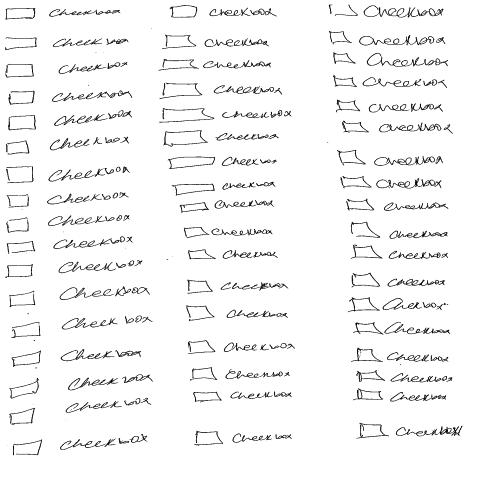 Checkbox Checkbox Checkbox
Checkbox Checkbox Checkbox
Checkbox Checkbox Checkbox
Checkbox Checkbox Checkbox
Checkbox Checkbox Checkbox
Checkbox Checkbox Checkbox
Checkbox Checkbox Checkbox
Checkbox Checkbox Checkbox
Checkbox Checkbox Checkbox
Checkbox Checkbox Checkbox
Checkbox Checkbox Checkbox
Checkbox Checkbox Checkbox
Checkbox Checkbox Checkbox
Checkbox Checkbox Checkbox
Checkbox Checkbox Checkbox
Checkbox Checkbox Checkbox
Checkbox
Checkbox Checkbox Checkbox